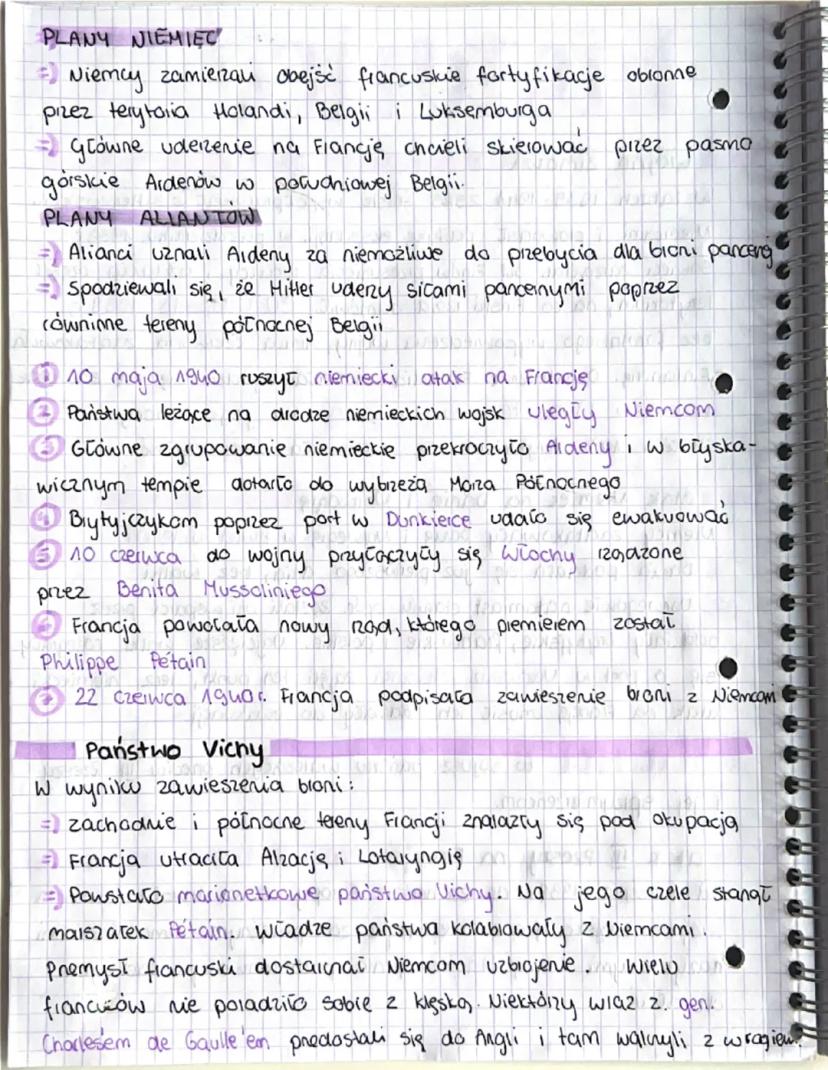 PLANY NIEMIEC
=) Niemcy zamierzali obejść francuskie fortyfikacje obronne
przez terytoria Holandi, Belgii i Luksemburga
=) Główne uderzenie na Francję chcieli skierować przez pasmo
górskie Ardenów w południowej Belgii.
PLANY ALIANTÓW
=) Alianci uznali Ardeny za niemożliwe do przebycia dla broni pancernej
=) Spodziewali się, że Hitler uderzy siłami pancernymi poprzez
równinne tereny północnej Belgii
1 10 maja 1940 ruszył niemiecki atak na Francję
2 Państwa leżące na drodze niemieckich wojsk uległy Niemcom
3 Główne zgrupowanie niemieckie przekroczyło Ardeny i w błyska-
wicznym tempie dotarło do wybrzeża Morza Północnego
4 Brytyjczykom poprzez port w Dunkierce udało się ewakuować
5 10 czerwca do wojny przyłączyły się Włochy rządzone
przez Benita Mussoliniego
6 Francja powołała nowy rząd, którego premierem został
Philippe Pétain
7 22 czerwca 1940r. Francja podpisała zawieszenie broni z Niemcami
Państwo Vichy
W wyniku zawieszenia broni:
=) zachodnie i północne tereny Francji znalazły się pod okupacją
=) Francja utraciła Alzację i Lotaryngię
=) Powstało marionetkowe państwo Vichy. Na jego czele stanął
marszałek Pétain. Władze państwa kolabrowały z Niemcami.
Przemysł francuski dostarczał Niemcom uzbrojenie. Wielu
francuzów nie poradziło sobie z klęską. Niektórzy wraz z. gen.
Charles'em de Gaulle'em przedostali się do Angli i tam walczyli z wrogiem.